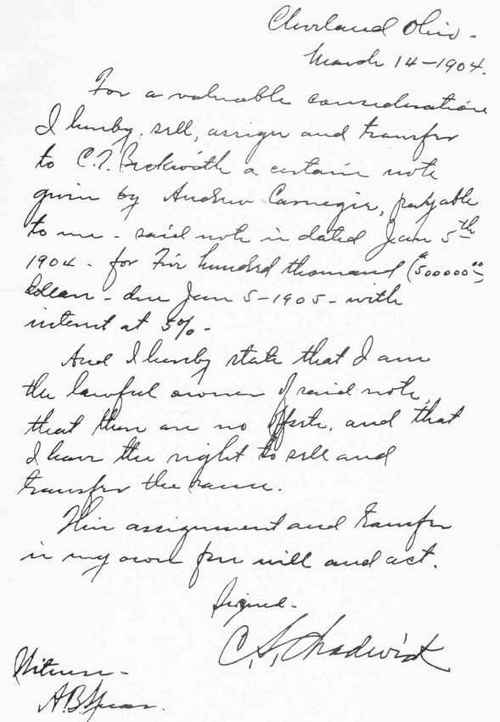 Cleveland Ohio -
March 14-1904.
For a valuable consideration
I hereby, sell, assign and transfer
to C.T. Beckwith a certain note
given by Andrew Carnegie, payable
to me - said note is dated Jan 5th
1904 - for Five hundred thousand ($500000 00
dollars - due Jan 5-1905 - with
interest at 5% -
And I hereby state that I am
the lawful owner of said note,
that there are no offsets, and that
I have the right to sell and
transfer the same.
This assignment and transfer
is my own free will and act.
Signed -
C, L, Chadwick
Witness -
A.B. Spear.